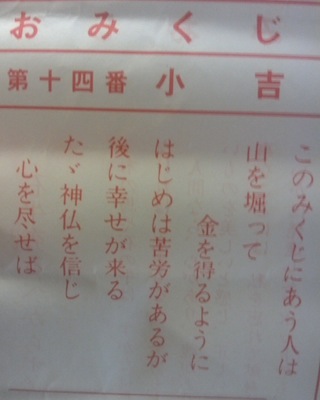 おみくじ
第十四番 小吉
このみくじにあう人は
山を掘って
金を得るように
はじめは苦労があるが
後に幸せが来る
たゞ神仏を信じ
心を尽せば